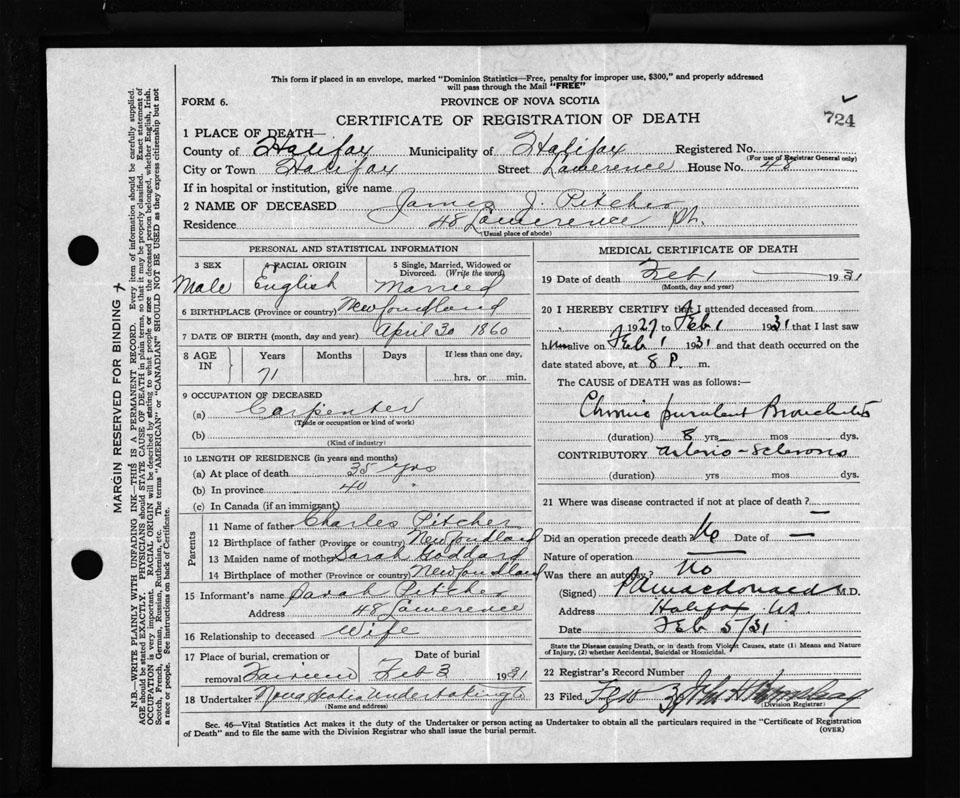 This form if placed in an envelope, marked "Dominion Statistics—Free, penalty for improper use, $300," and properly addressed
will pass through the Mail "FREE"
FORM 6.
PROVINCE OF NOVA SCOTIA
724
CERTIFICATE OF REGISTRATION OF DEATH
1 PLACE OF DEATH—
County of Halifax Municipality of Halifax Registered No.
(For use of Registrar General only)
City or Town Halifax Street Lawerence House No. 48
If in hospital or institution, give name
2 NAME OF DECEASED James J. Pitcher
Residence 48 Lawerence
(Usual place of abode)
PERSONAL AND STATISTICAL INFORMATION
3 SEX 4 RACIAL ORIGIN 5 Single, Married, Widowed or Divorced. (Write the word)
Male English Married
6 BIRTHPLACE (Province or country) Newfoundland
7 DATE OF BIRTH (month, day and year) April 30 1860
8 AGE IN Years Months Days If less than one day,
71 hrs. or min.
9 OCCUPATION OF DECEASED
(a) Carpenter
(Trade or occupation or kind of work)
(b)
(Kind of industry)
10 LENGTH OF RESIDENCE (in years and months)
(a) At place of death 35 yrs
(b) In province 40 "
(c) In Canada (if an immigrant)
Parents
11 Name of father Charles Pitcher
12 Birthplace of father (Province or country) Newfondland
13 Maiden name of mother Sarah Goddard
14 Birthplace of mother (Province or country) Newfondland
15 Informant's name Sarah Pitcher
Address 48 Lawerence
16 Relationship to deceased Wife
17 Place of burial, cremation or removal Date of burial
Feb 3 1931
18 Undertaker Nova Scotia Undertaking Co
(Name and address)
MEDICAL CERTIFICATE OF DEATH
19 Date of death Feb 1 — 1931
(Month, day and year)
20 I HEREBY CERTIFY that I attended deceased from
1927 to Feb 1 1931 that I last saw
him alive on Feb 1 1931 and that death occurred on the
date stated above, at 8 P. m.
The CAUSE OF DEATH was as follows:—
Chronic purulent Bronchitis
(duration) 8 yrs. mos dys.
CONTRIBUTORY arterio-Sclerosis
(duration) yrs. mos. dys.
21 Where was disease contracted if not at place of death? —
Did an operation precede death? No Date of —
Nature of operation —
Was there an autopsy? No
(Signed) Macdonald M.D.
Address Halifax NS
Date Feb 5/31
State the Disease causing Death, or in death from Violent Causes, state (1) Means and Nature of Injury, (2) whether Accidental, Suicidal or Homicidal.
22 Registrar's Record Number
23 Filed
(Division Registrar)
Sec. 46—Vital Statistics Act makes it the duty of the Undertaker or person acting as Undertaker to obtain all the particulars required in the "Certificate of Registration
of Death" and to file the same with the Division Registrar who shall issue the burial permit.
(OVER)
MARGIN RESERVED FOR BINDING
N.B.—WRITE PLAINLY WITH UNFADING INK—THIS IS A PERMANENT RECORD. Every item of information should be carefully supplied.
AGE should be stated EXACTLY. PHYSICIANS should STATE CAUSE OF DEATH in plain terms, so that it may be properly classified. Exact statement of
OCCUPATION is very important. RACIAL ORIGIN will be described by stating to what people or race the deceased person belonged, whether English, Irish,
Scotch, French, German, Russian, Ruthenian, etc. The terms "AMERICAN" or "CANADIAN" SHOULD NOT BE USED as they express citizenship but not
a race or people. See instructions on back of Certificate.